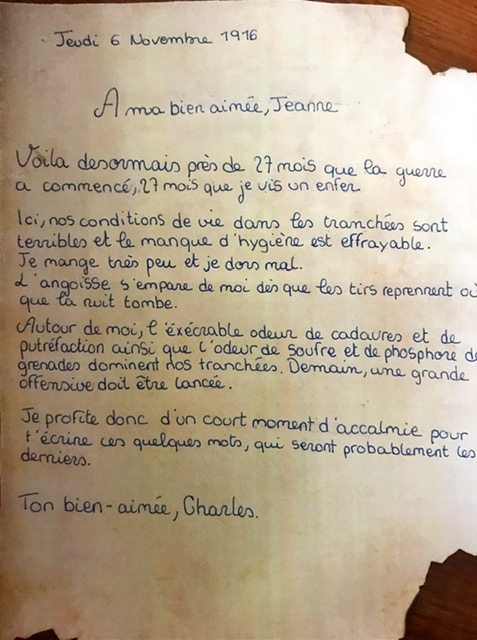 Jeudi 6 Novembre 1916
A ma bien aimée, Jeanne
Voila desormais près de 27 mois que la guerre
a commencé, 27 mois que je vis un enfer
Ici, nos conditions de vie dans les tranchées sont
terribles et le manque d'hygiène est effrayable.
Je mange très peu et je dors mal.
L'angoisse s'empare de moi dès que les tirs reprennent où
que la nuit tombe.
Autour de moi, l'éxécrable odeur de cadavres et de
putréfaction ainsi que l'odeur de soufre et de phosphore de
grenades dominent nos tranchées. Demain, une grande
offensive doit être lancée.
Je profite donc d'un court moment d'accalmie pour
t'écrire ces quelques mots, qui seront probablement les
derniers.
Ton bien-aimée, Charles.